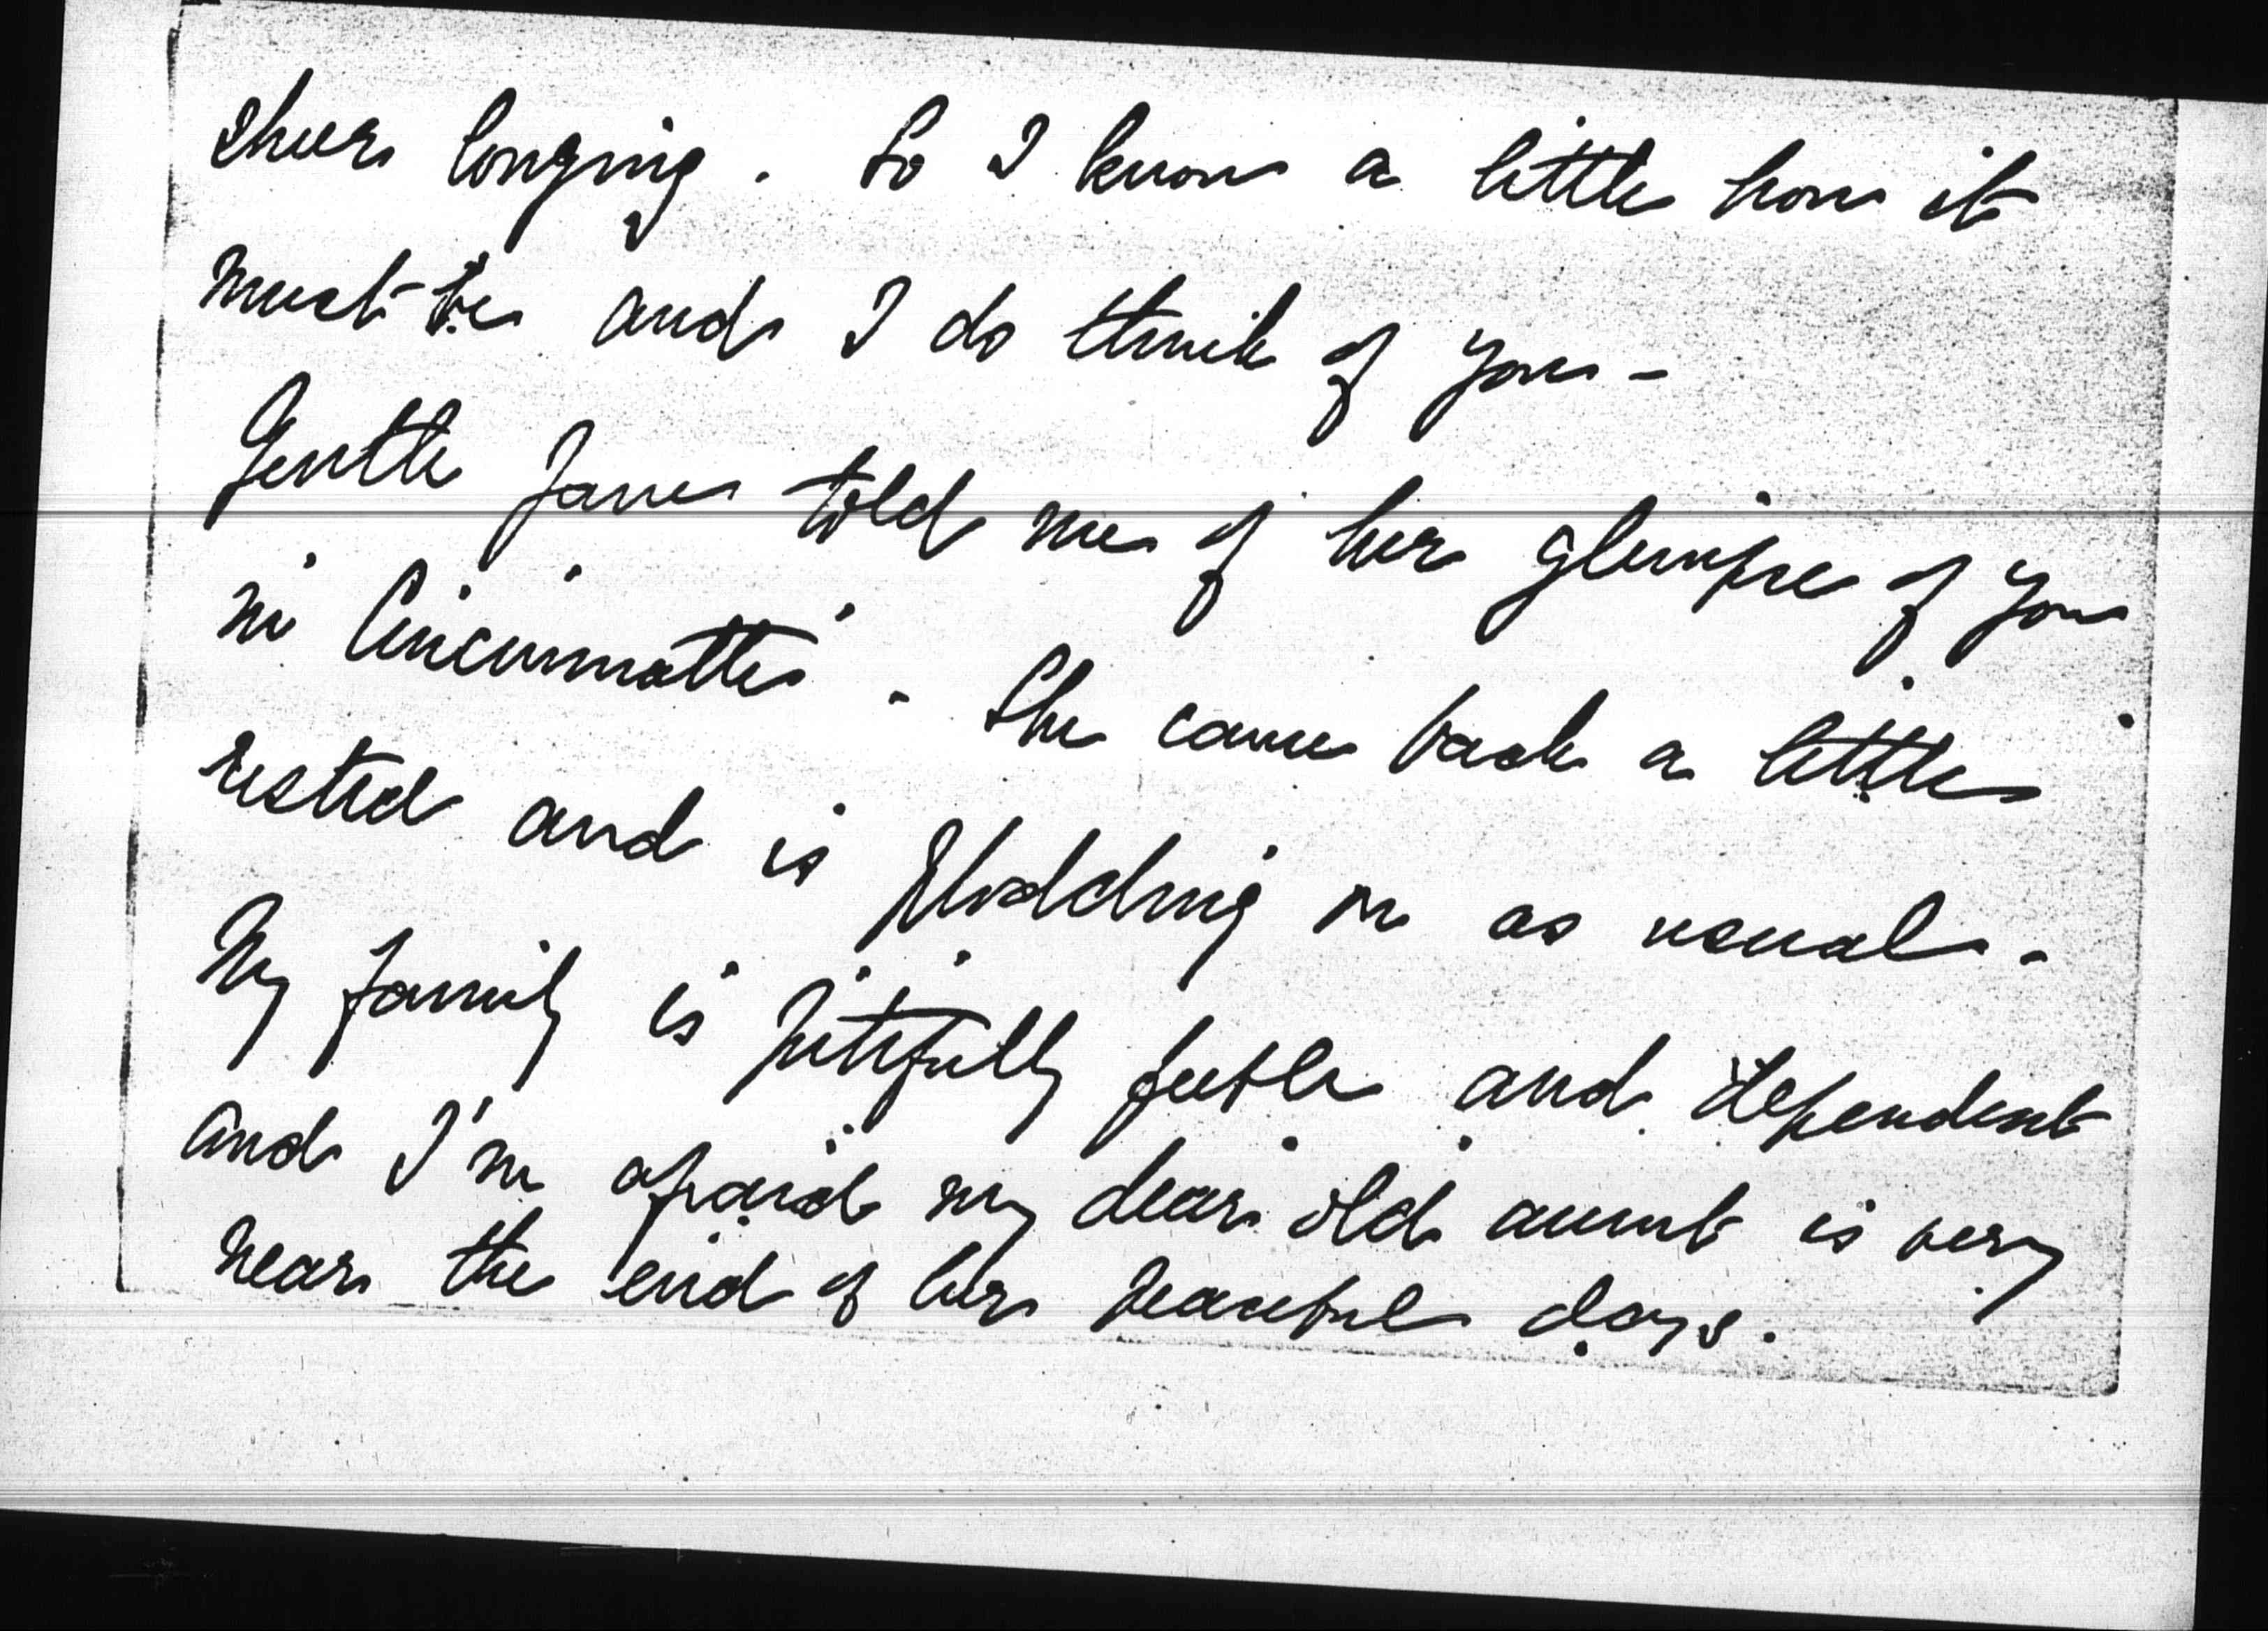 sheer longing. So I know a little how it
must be and I do think of you -
Gentle Jane told me of her glimpse of you
in Cincinnatti - She came back a little
rested and is plodding on as usual -
My family is pitifully feeble and dependent
and I'm afraid my dear old aunt is very
near the end of her peaceful days.